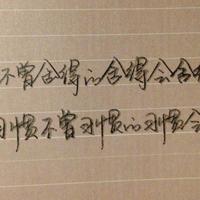 不曾舍得的舍得会舍
习惯不曾习惯的习惯会